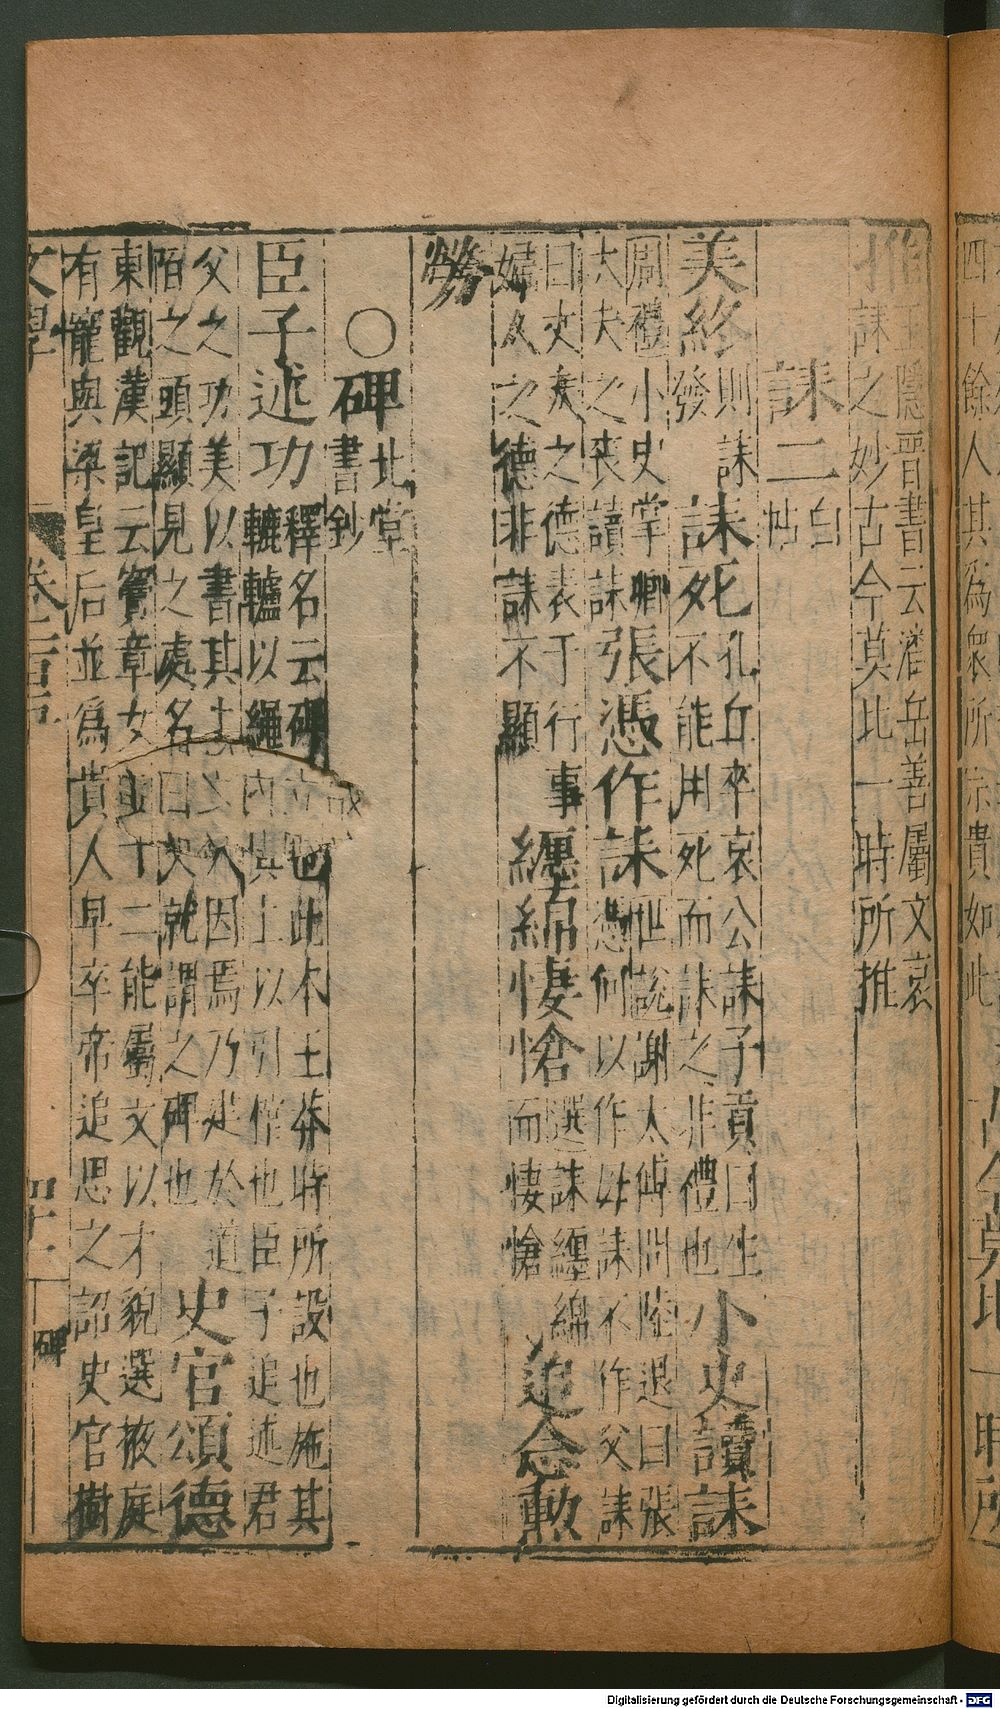 隱晉書云潘岳善屬文哀
誄之妙古今莫比一時所推
誄二 白帖
美終 則誄發 誄死 孔丘卒哀公誄子貢曰生不能用死而誄之非禮也 小史讀誄
周禮小史掌卿大夫之喪讀誄 張憑作誄 世說謝太傅問陸退曰張憑何以作母誄不作父誄
曰丈夫之德表于行事婦人之德非誄不顯 纏綿悽愴 選誄纏綿而悽愴 追念勲
勞
○碑 北堂書鈔
臣子述功 釋名云碑 也此本王莽時所設也施其轆轤以繩 其上以引棺也臣子追述君
父之功美以書其 因焉乃建於道陌之頭顯見之處名曰 就謂之碑也 史官頌德
東觀漢記云竇章女 十二能屬文以才貌選掖庭
有寵與梁皇后並為貴人早卒帝追思之詔史官樹
文學
碑
四十餘人其為衆所宗貴如此
古今莫比一時所
Digitalisierung gefördert durch die Deutsche Forschungsgemeinschaft - DFG